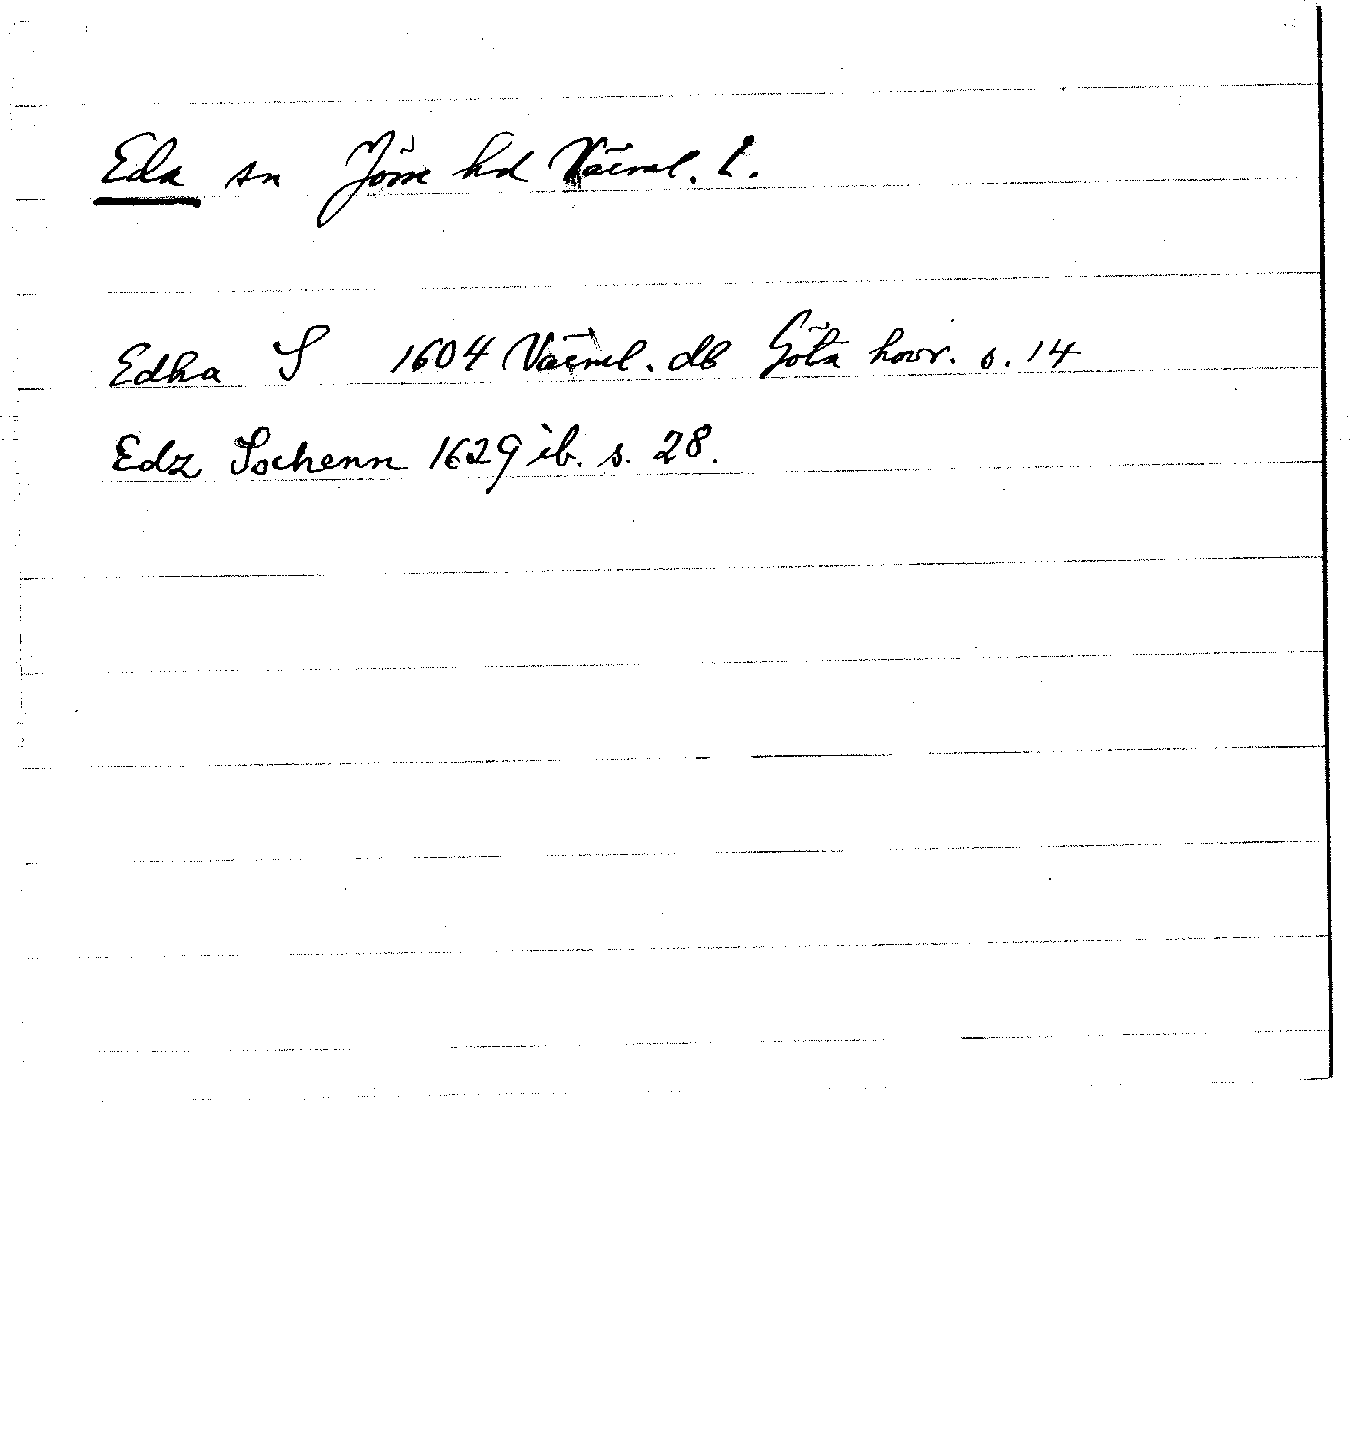 Eda sn Jösse hd Värml. l.
Edha S 1604 Värml. db Göta hovr. s. 14
Edz Sochenn 1629 ib. s. 28.